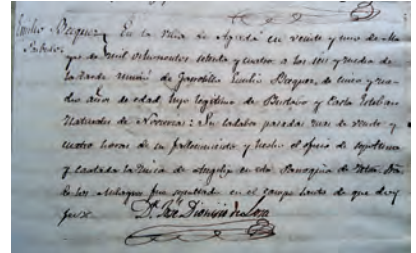 Emilio Becquer
Párbulo
En la Villa de Agreda en veinte y uno de Ma
yo de mil ochocientos setenta y cuatro a las seis y media de
la tarde murió de Emilio Becquer, de cinco y me
dio años de edad, hijo legitimo de y Casta Esteban
Naturales de : Su cadaver pasadas mas de veinte y
cuatro horas de su fallecimiento y hecho el oficio de sepultura
y cantada la Misa de Angelis en esta Parroquia de Ntra. Sra.
de los Milagros fue sepultado en el campo santo de que doy
fe.
D. José Dionisio de